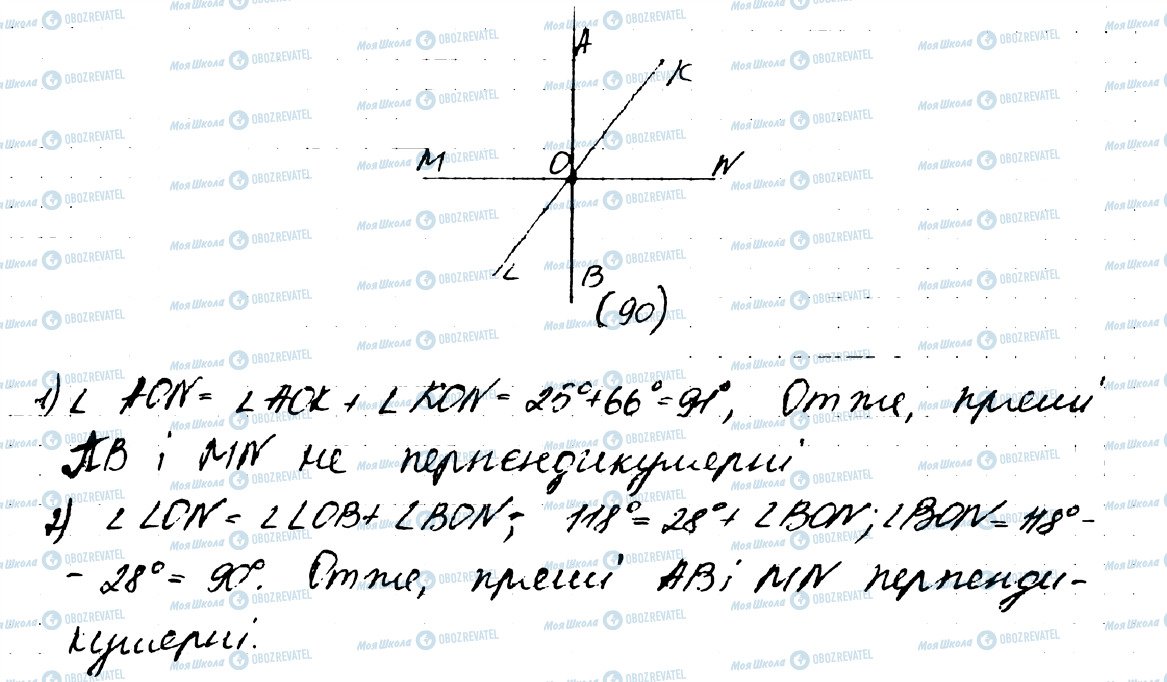 A
K
M O N
L B
(90)
1) ∠ AON = ∠AOK + ∠KON = 25° + 66° = 91°, Отже, прямі
AB і MN не перпендикулярні
2) ∠LON = ∠LOB + ∠BON; 118° = 28° + ∠BON; ∠BON = 118° -
- 28° = 90°. Отже, прямі AB і MN перпенди-
кулярні.
Моя Школа OBOZREVATEL